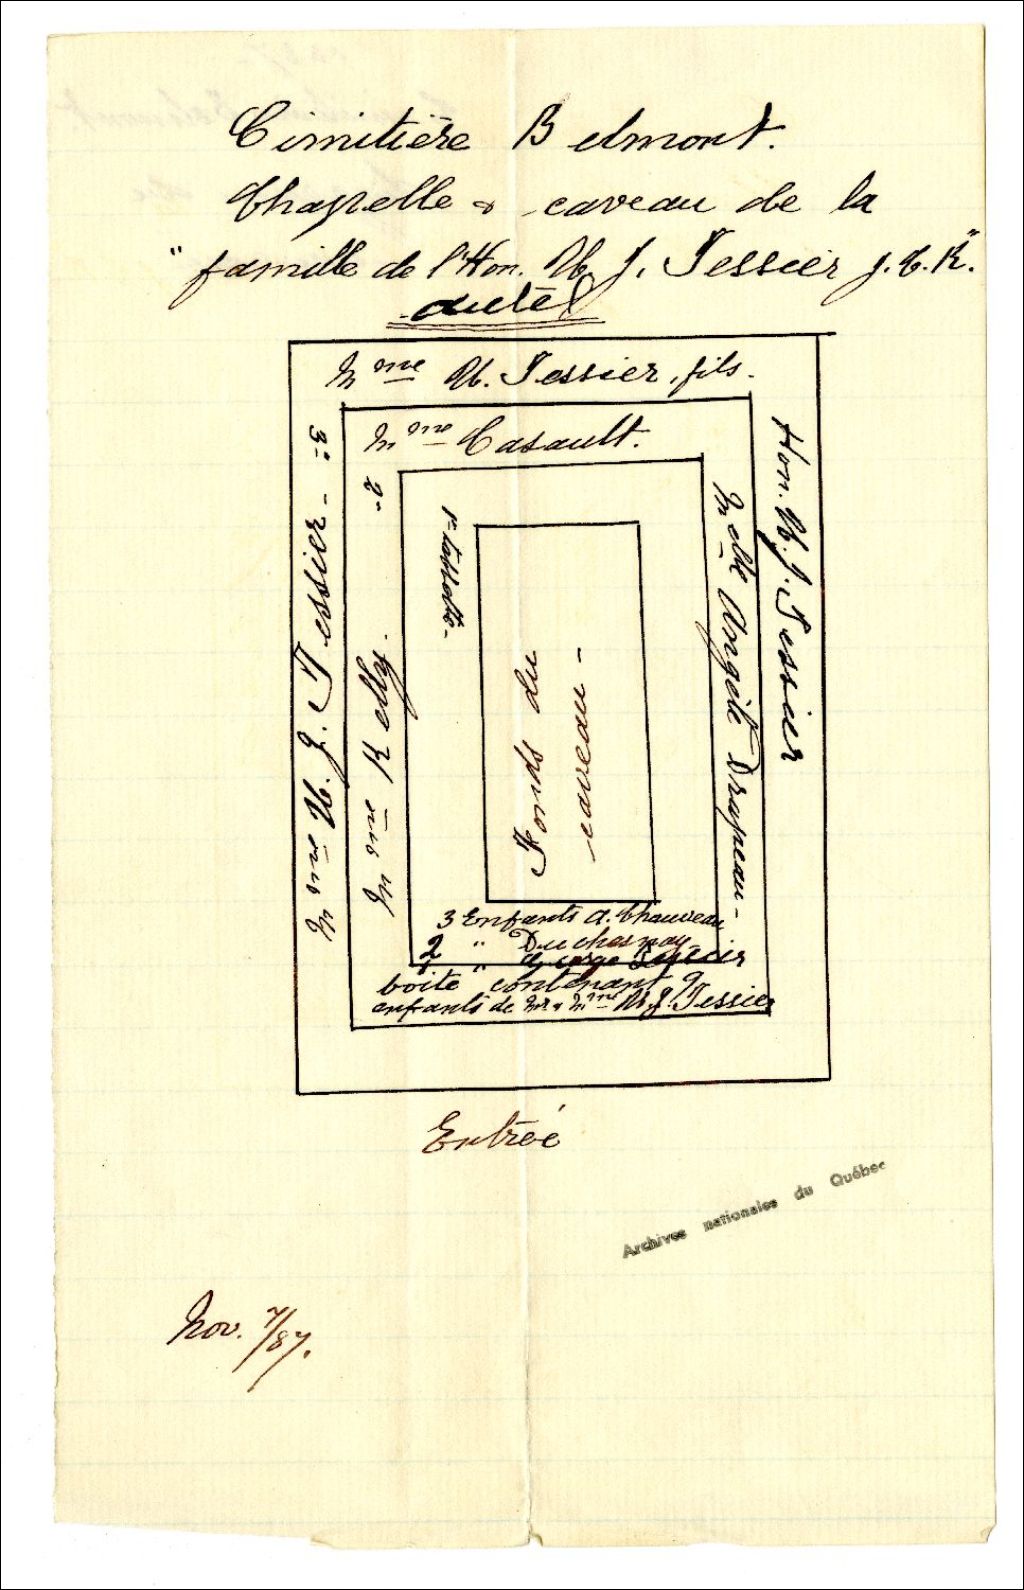 Cimitière Belmont.
Chapelle & caveau de la
"famille de l'Hon. U. J. Tessier J. C. R."
autel
Mme U. Tessier, fils.
Mme Casault.
3º
Mme U. J. Tessier -
2º
Mme Kelly.
1º
Melle Angèle Drapeau -
Hon. U. J. Tessier
Fonds du
caveau -
3 Enfants A. Chauveau
2 " Duchesnay
1 " George Tessier
boite contenant 9
enfants de Mr & Mme U. J. Tessier
Entrée
Archives nationales du Québec
Nov. 7/87.